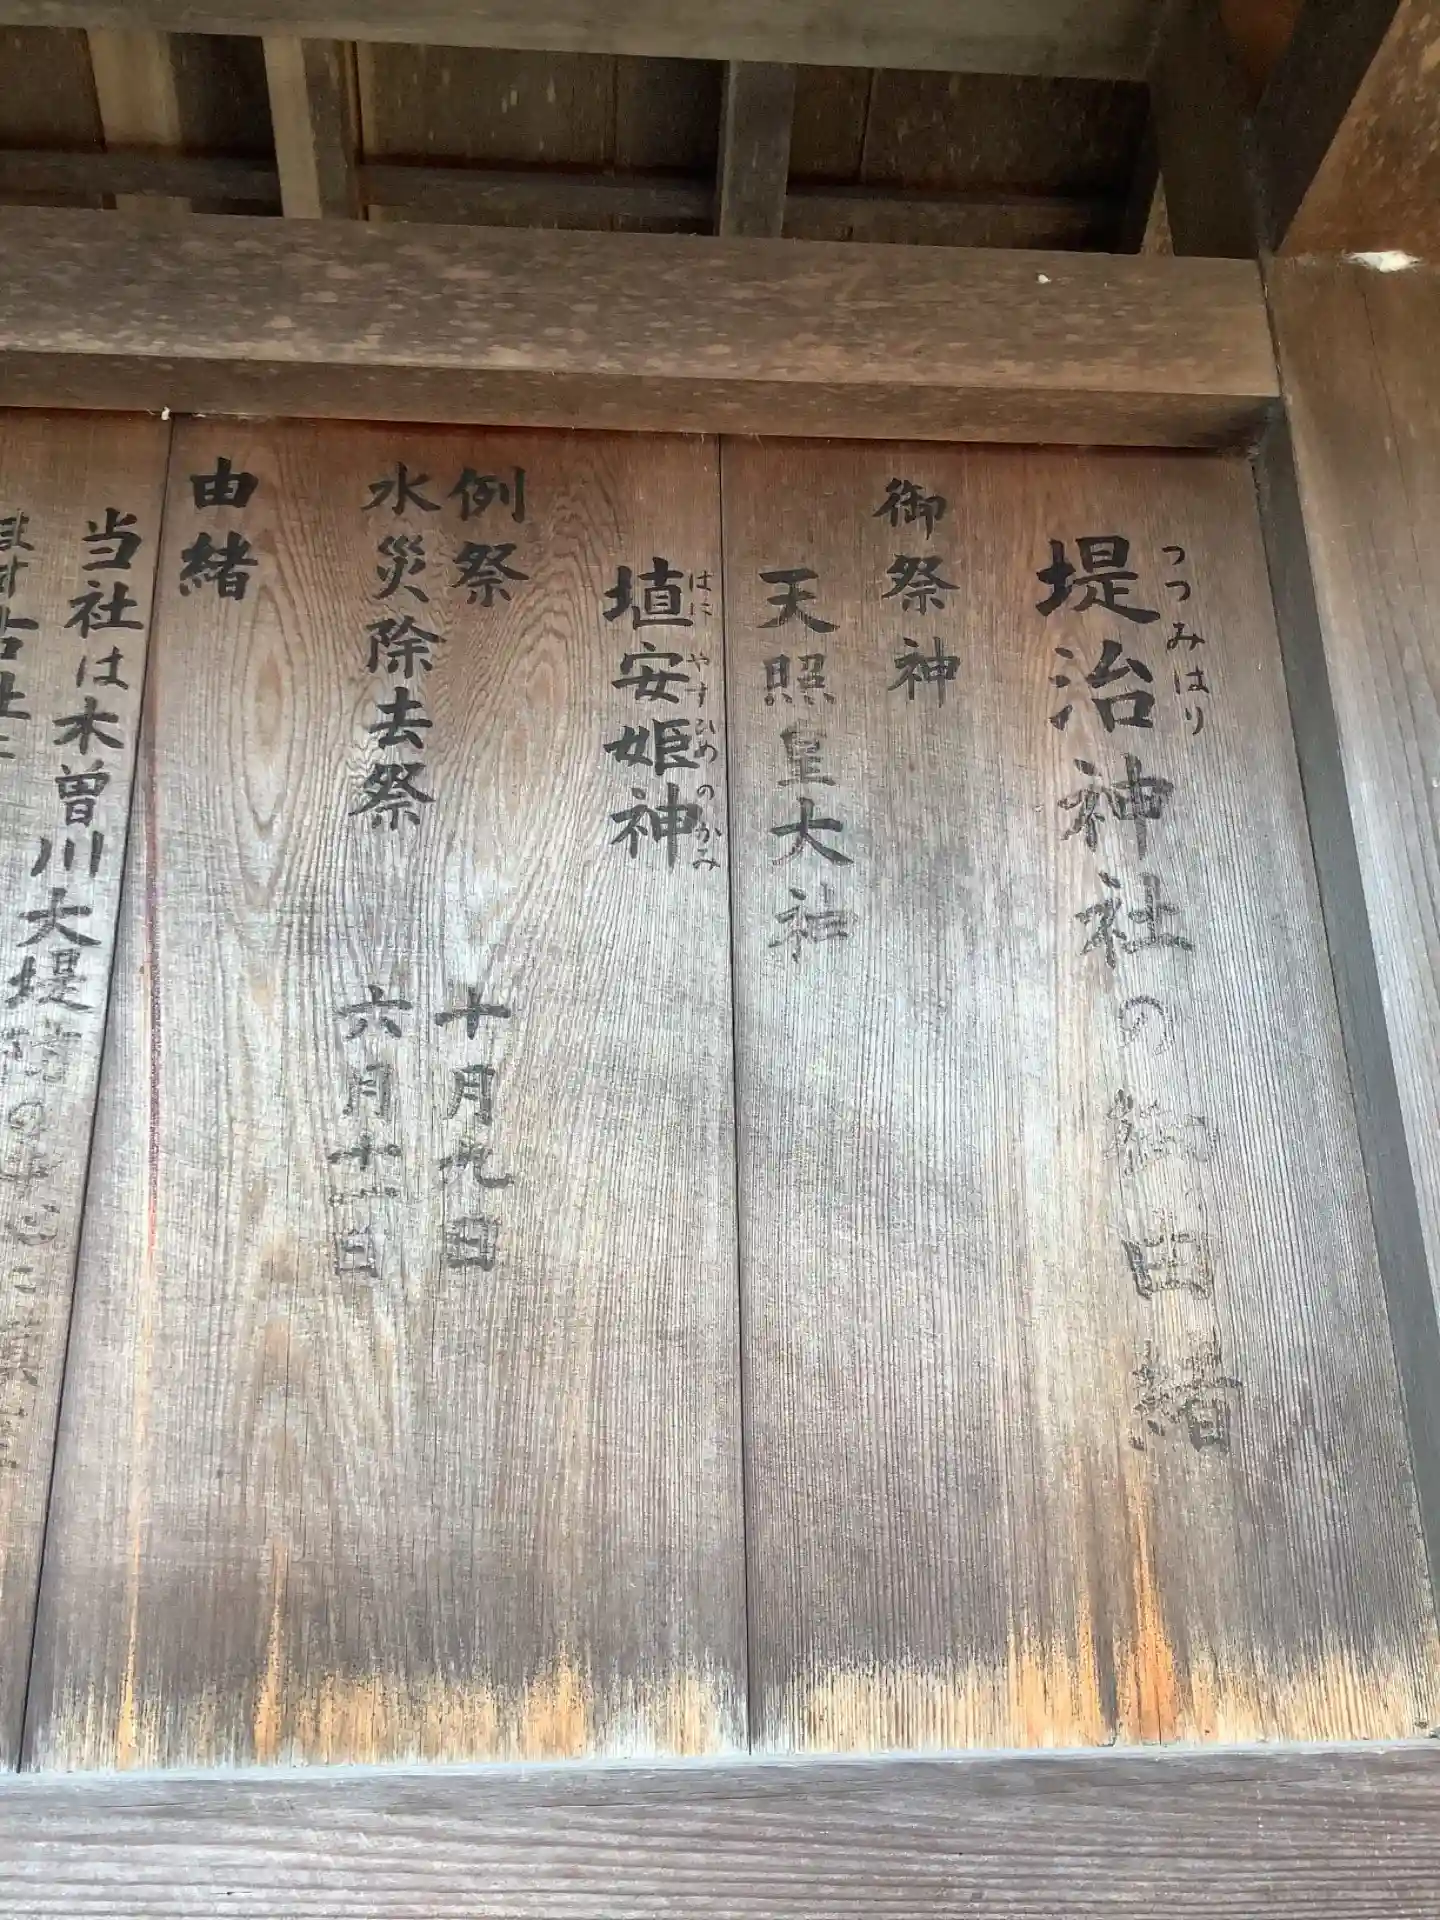 堤治神社の御由緒
つつみはり
御祭神
天照皇大神
埴安姫神
はにやすひめのかみ
例祭 十月九日
水災除去祭 六月十一日
由緒
当社は木曽川大堤防の中心に